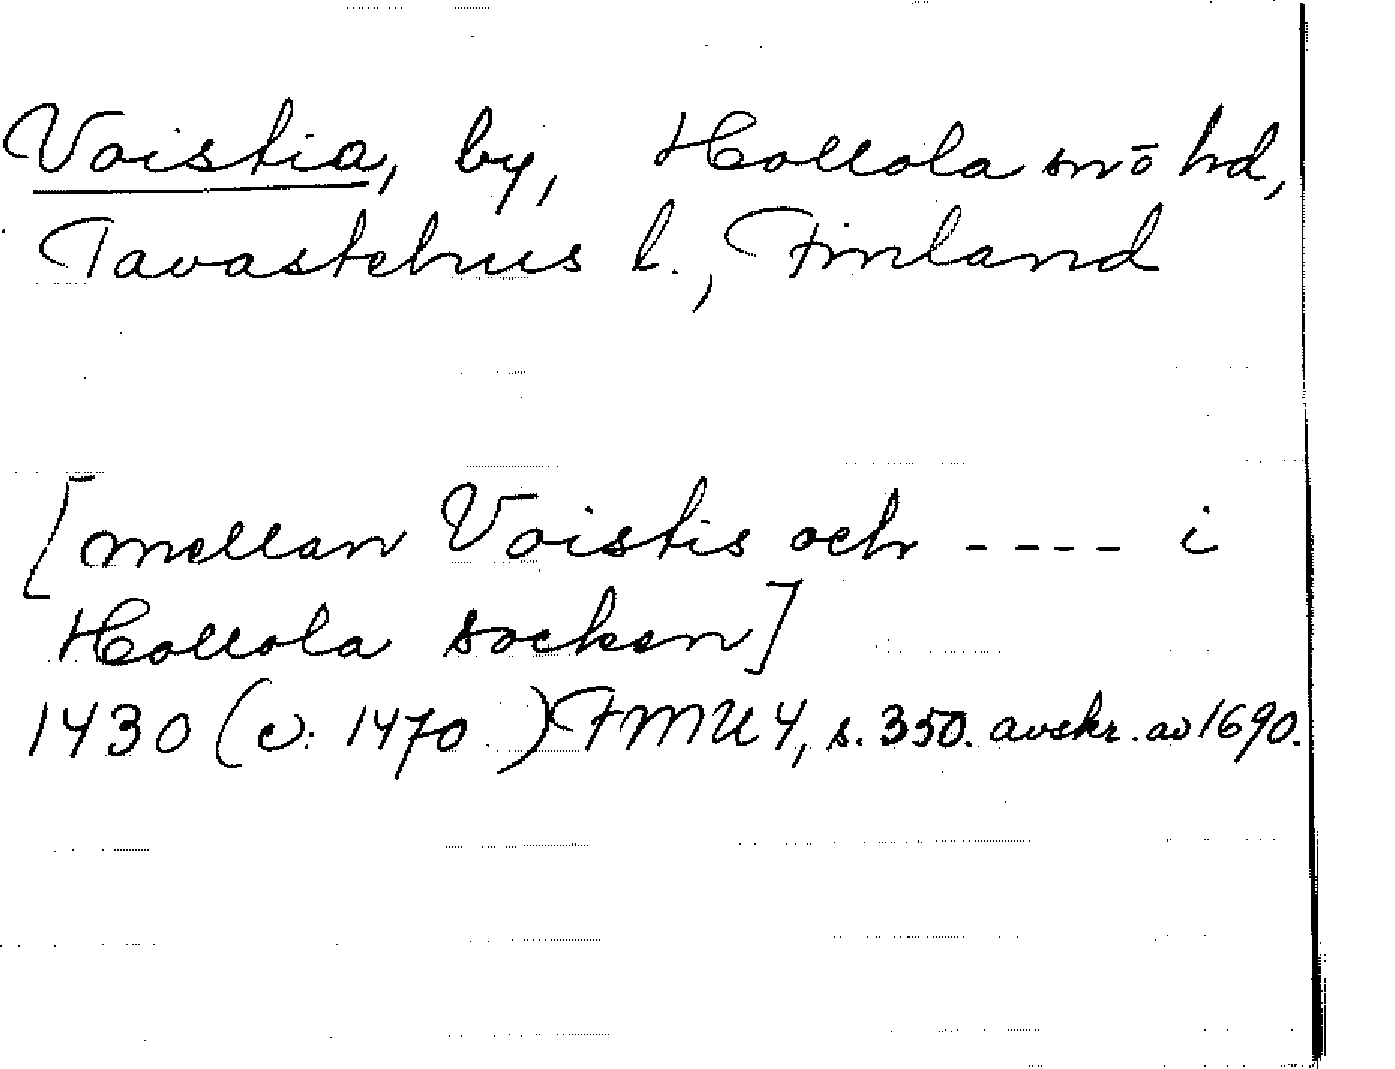 Voistia, by, Hollola sn o hd,
Tavastehus l., Finland
[mellan Voistis och ---- i
Hollola socken]
1430 (v: 1470 ) FMU 4, s. 350. avskr. av 1690.